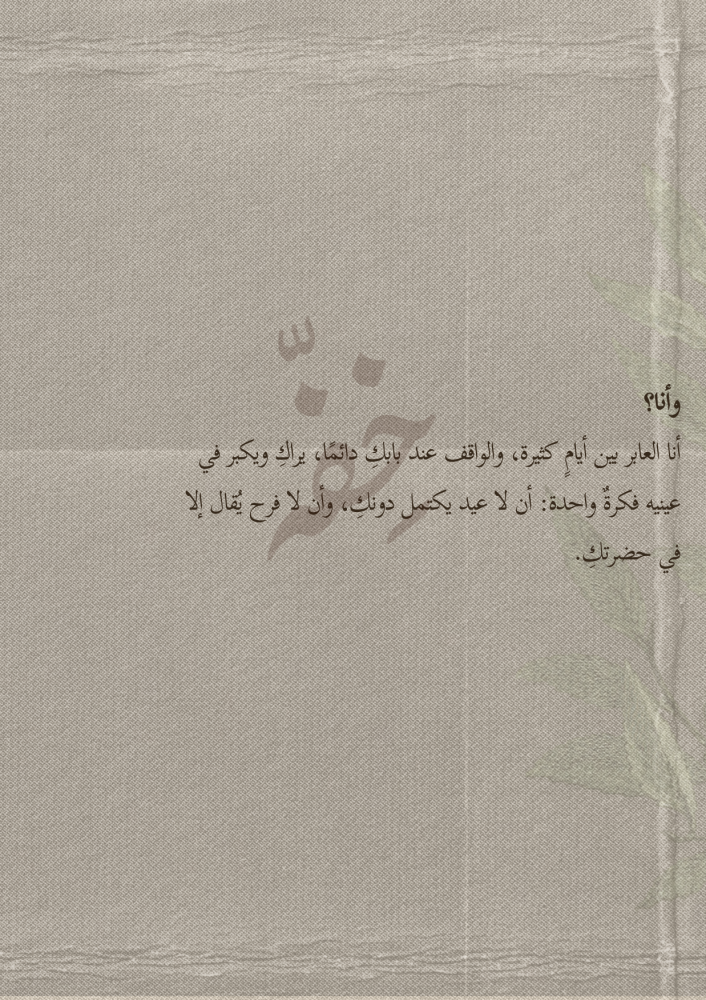 وأنا؟
أنا العابر بين أيامٍ كثيرة، والواقف عند بابكِ دائمًا، يراكِ ويكبر في
عينيه فكرةٌ واحدة: أن لا عيد يكتمل دونكِ، وأن لا فرح يُقال إلا
في حضرتكِ.